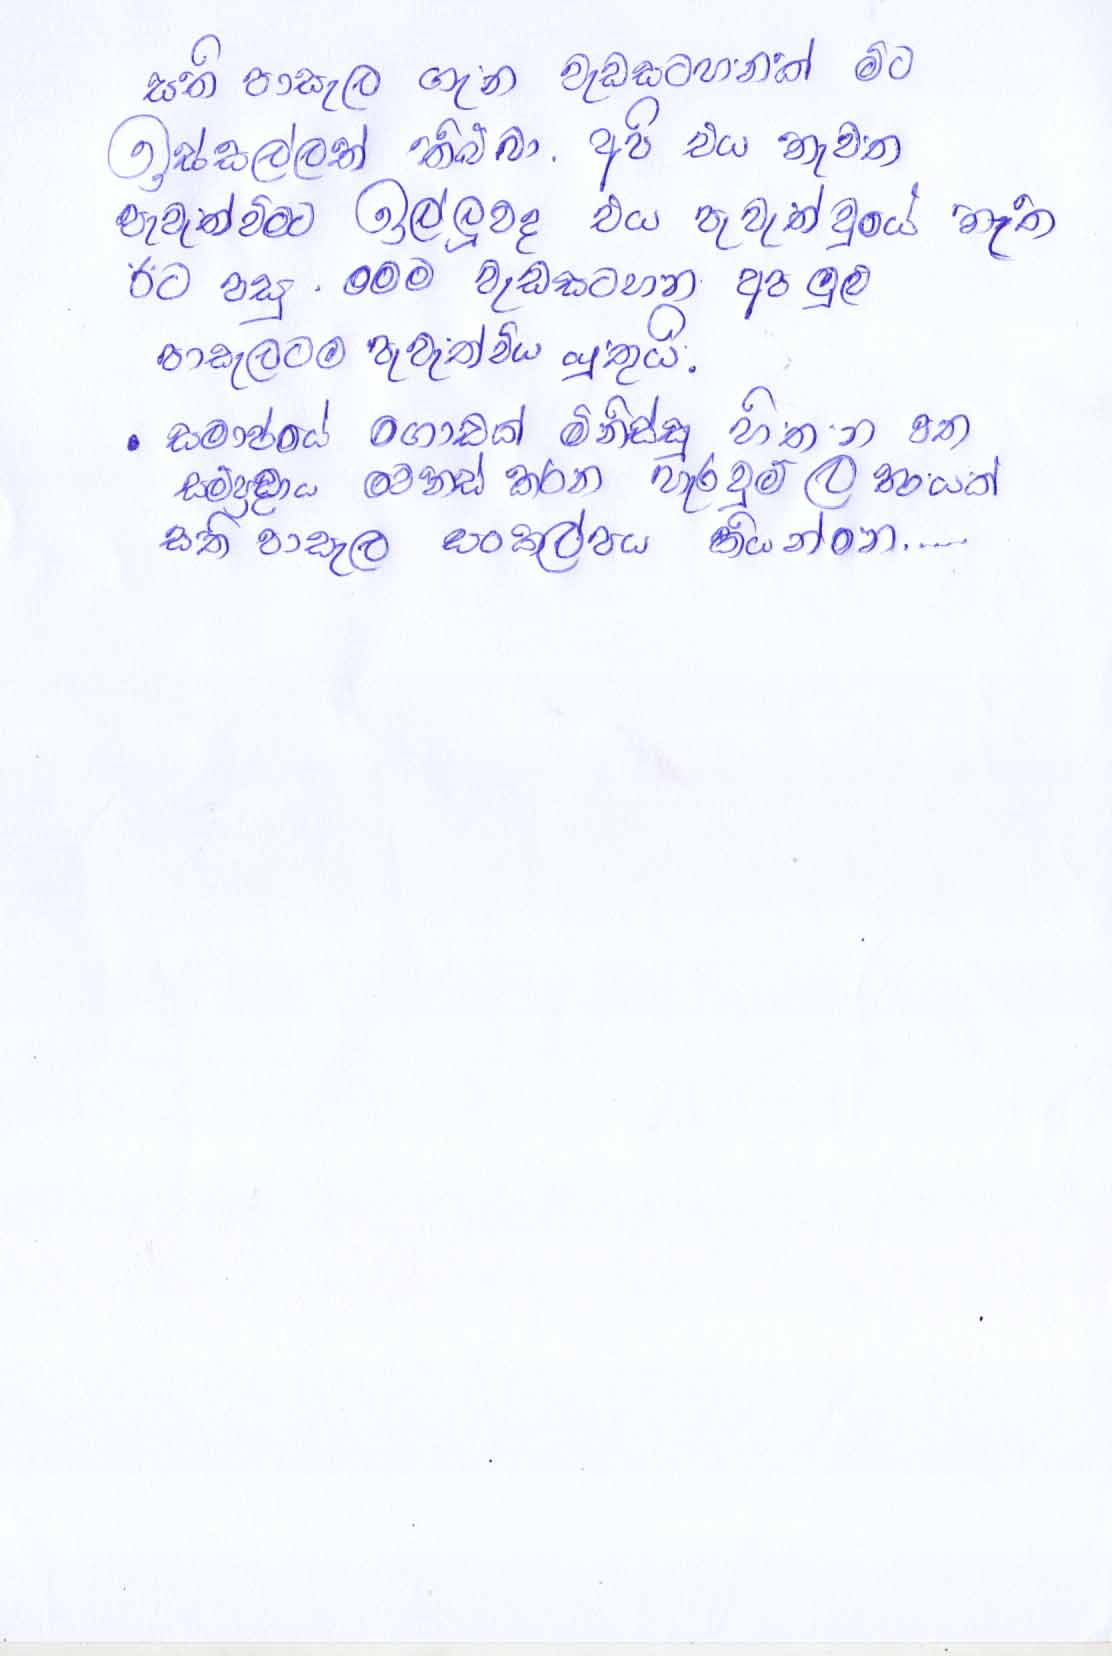 සති පාසැල ගැන වැඩසටහනක් මිට
ඉස්සල්ලත් තිබ්බා. අපි එය නැවත
පැවැත්විමට ඉල්ලූවද එය පැවැත්වූයේ නැත
ඊට පසු. මෙම වැඩසටහන අප මුළු
පාසැලටම පැවැත්විය යුතුයි.
• සමාජයේ ගොඩක් මිනිස්සු හිතන පතන
සම්ප්‍රදාය වෙනස් කරන හැරවුම් ලක්ෂයක්
සති පාසැල සංකල්පය කියන්නෙ.....